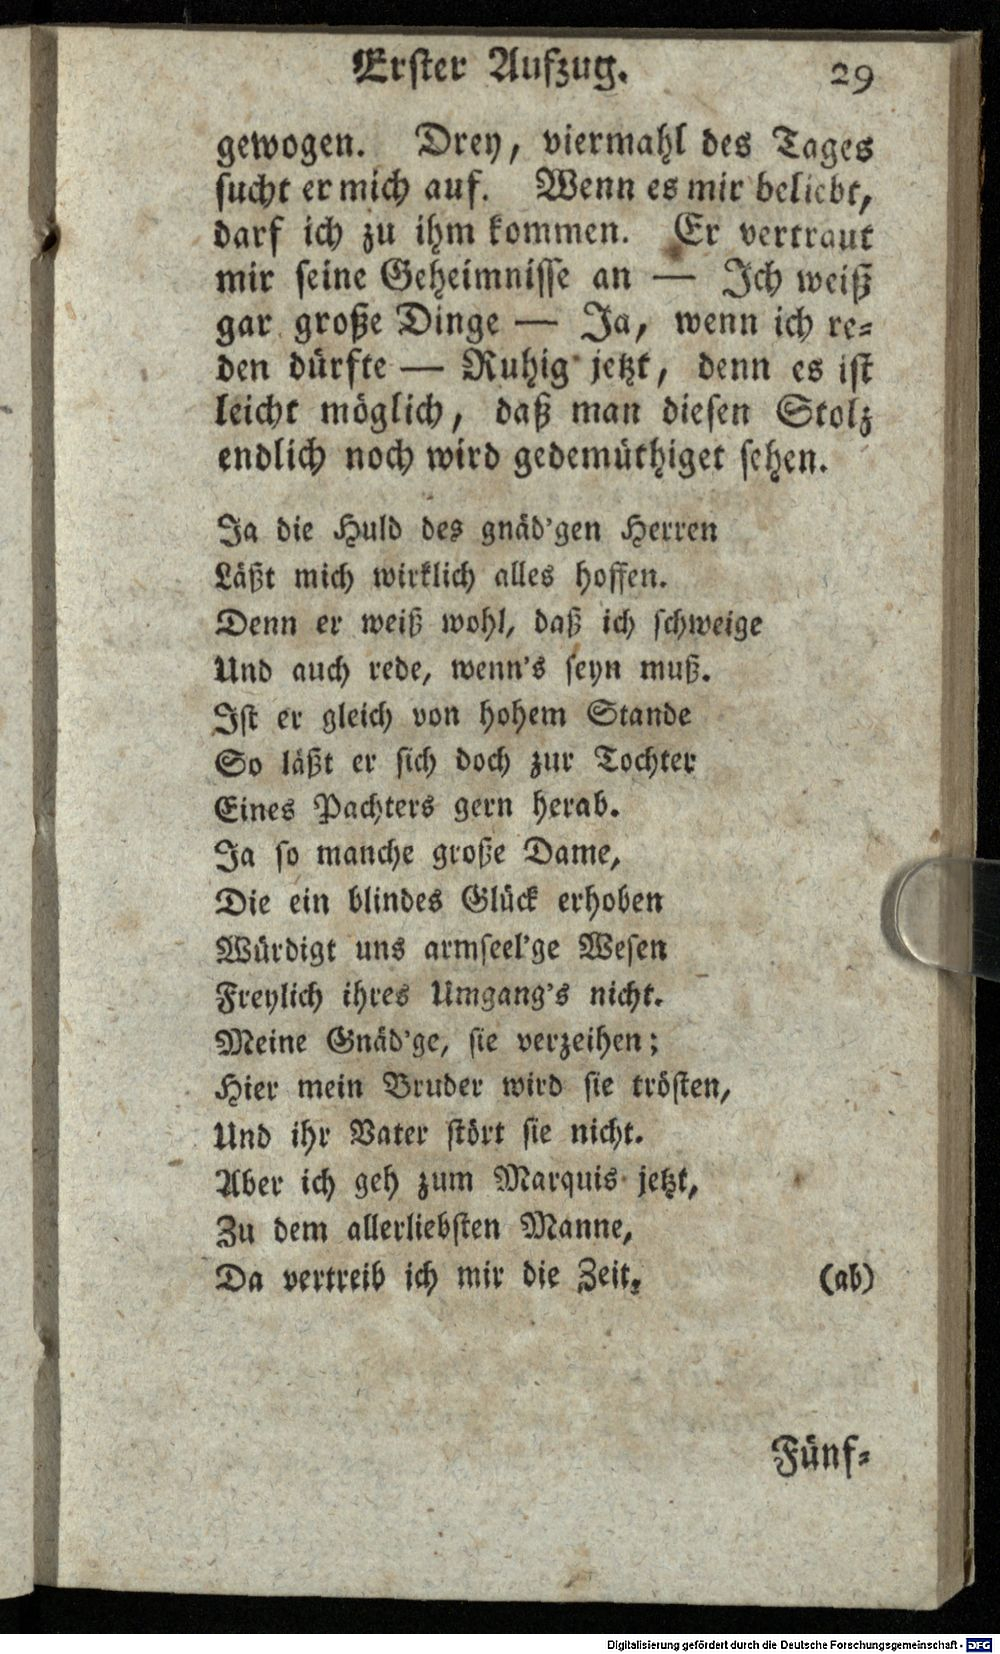 Erster Aufzug. 29
gewogen. Drey, viermahl des Tages
sucht er mich auf. Wenn es mir beliebt,
darf ich zu ihm kommen. Er vertraut
mir seine Geheimnisse an — Ich weiß
gar große Dinge — Ja, wenn ich re-
den dürfte — Ruhig jetzt, denn es ist
leicht möglich, daß man diesen Stolz
endlich noch wird gedemüthiget sehen.
Ja die Huld des gnäd'gen Herren
Läßt mich wirklich alles hoffen.
Denn er weiß wohl, daß ich schweige
Und auch rede, wenn's seyn muß.
Ist er gleich von hohem Stande
So läßt er sich doch zur Tochter
Eines Pachters gern herab.
Ja so manche große Dame,
Die ein blindes Glück erhoben
Würdigt uns armseel'ge Wesen
Freylich ihres Umgang's nicht.
Meine Gnäd'ge, sie verzeihen;
Hier mein Bruder wird sie trösten,
Und ihr Vater stört sie nicht.
Aber ich geh zum Marquis jetzt,
Zu dem allerliebsten Manne,
Da vertreib ich mir die Zeit. (ab)
Fünf-
Digitalisierung gefördert durch die Deutsche Forschungsgemeinschaft - DFG